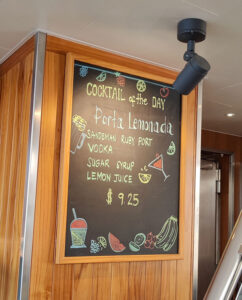 COCKTAIL of the DAY
Porta Lemonada
SANDEMAN RUBY PORT
VODKA
SUGAR SYRUP
LEMON JUICE
$ 9.25